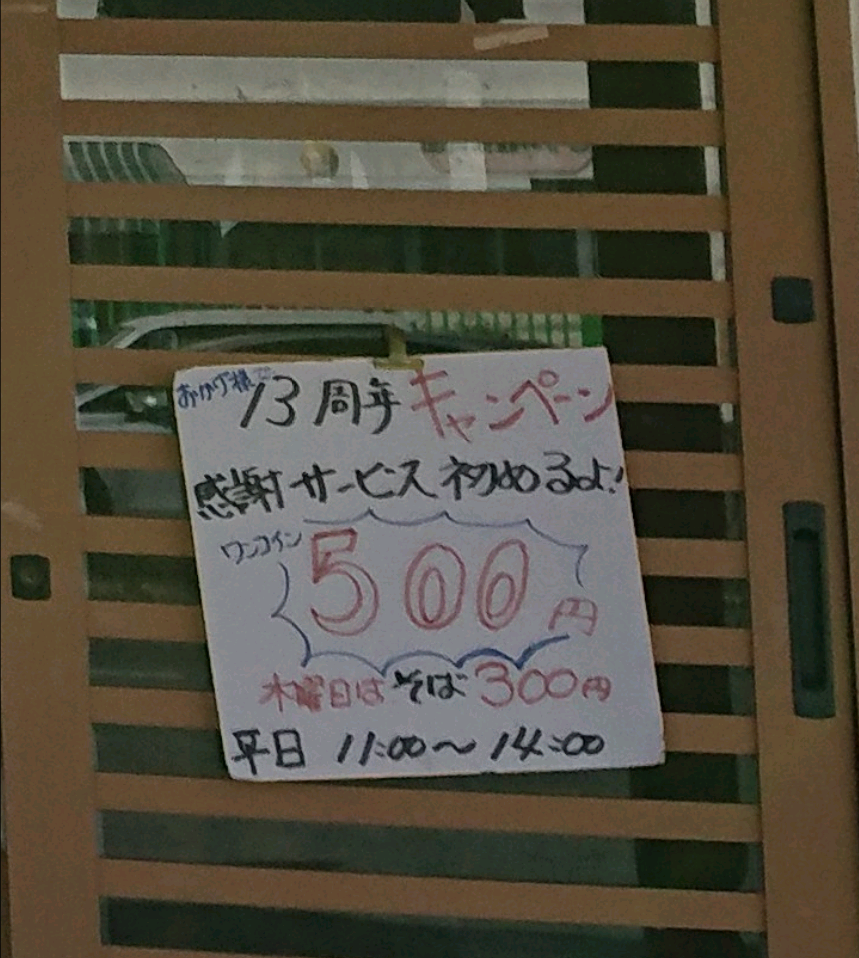 おかげ様で 13周年キャンペーン
感謝サービス初めるよ!
ワンコイン 500円
木曜日はそば300円
平日 11:00〜14:00